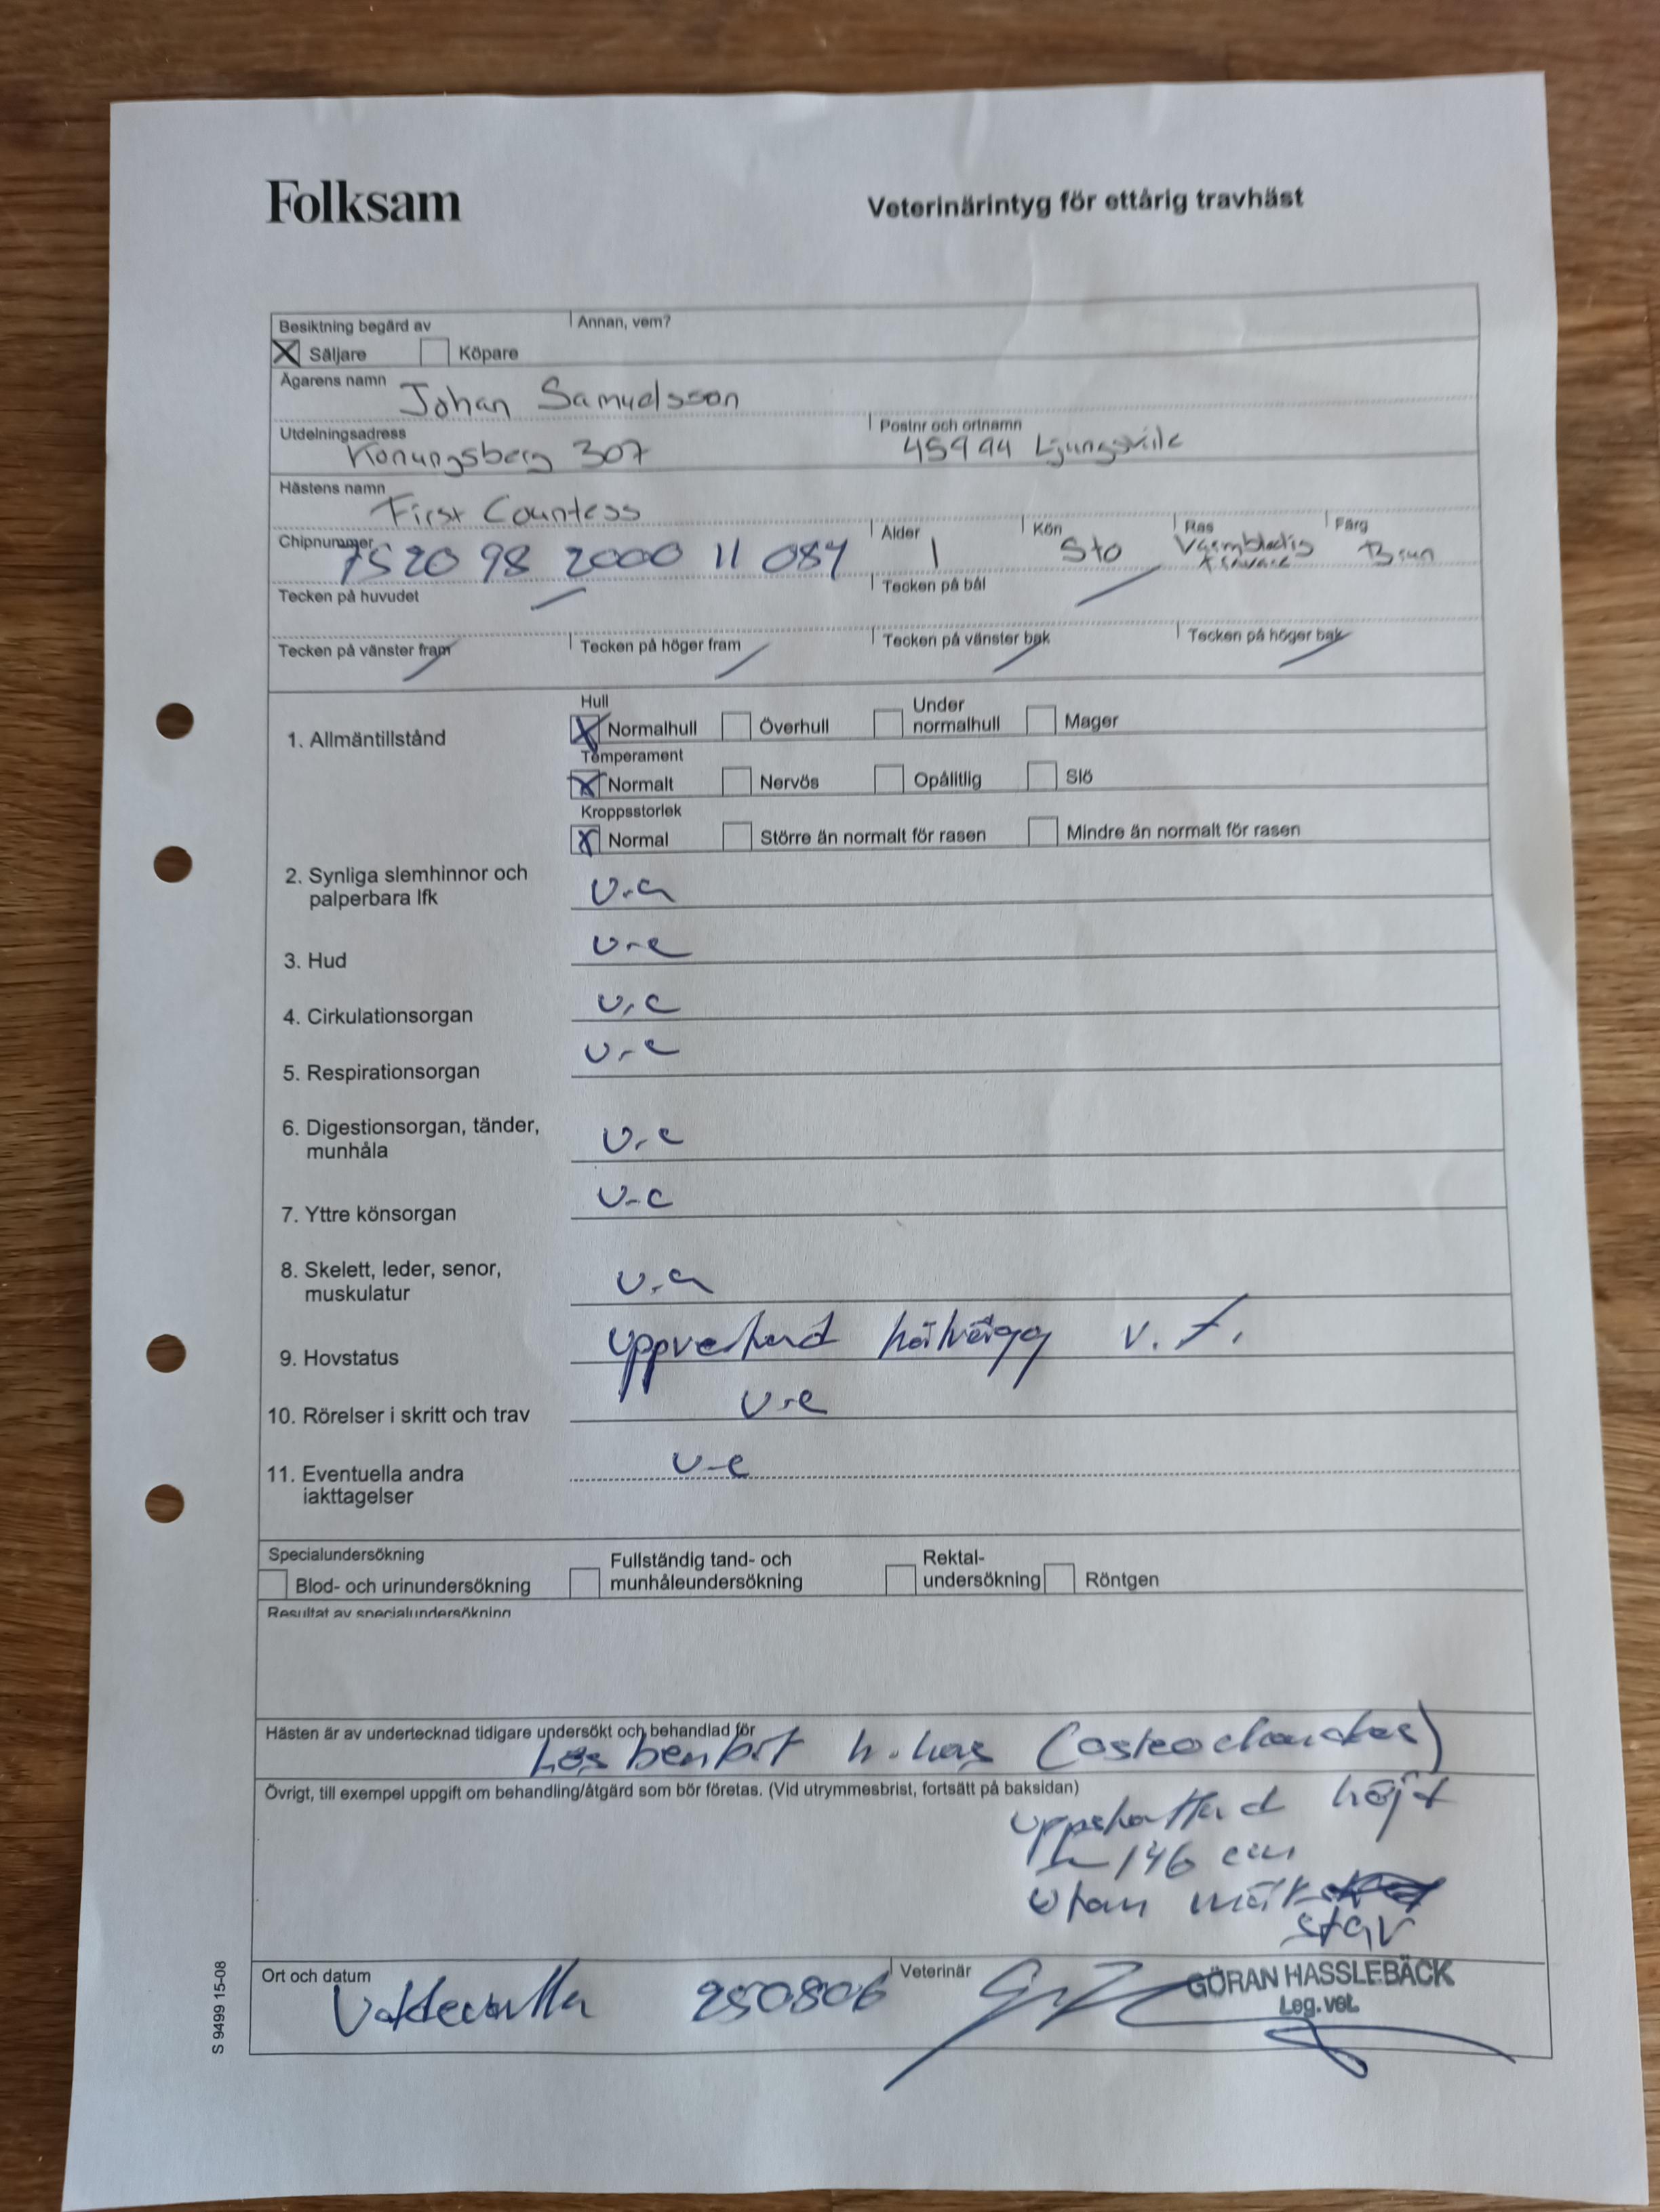 Folksam
Veterinärintyg för ettårig travhäst
Besiktning begärd av Annan, vem?
X Säljare Köpare
Ägarens namn Johan Samuelsson
Utdelningsadress Konungsberg 307 Postnr och ortnamn 45994 Ljungskile
Hästens namn First Countess
Chipnummer 7520 98 2000 11 084 Ålder 1 Kön Sto Ras Varmblodig travare Färg Brun
Tecken på huvudet Tecken på bål
Tecken på vänster fram Tecken på höger fram Tecken på vänster bak Tecken på höger bak
1. Allmäntillstånd
Hull
X Normalhull Överhull Under normalhull Mager
Temperament
X Normalt Nervös Opålitlig Slö
Kroppsstorlek
X Normal Större än normalt för rasen Mindre än normalt för rasen
2. Synliga slemhinnor och
palperbara lfk u.a
3. Hud u.a
4. Cirkulationsorgan u.a
5. Respirationsorgan u.a
6. Digestionsorgan, tänder,
munhåla u.a
7. Yttre könsorgan u.a
8. Skelett, leder, senor,
muskulatur u.a
9. Hovstatus v.f.
10. Rörelser i skritt och trav u.a
11. Eventuella andra u.a
iakttagelser
Specialundersökning
Blod- och urinundersökning Fullständig tand- och munhåleundersökning Rektal-undersökning Röntgen
Resultat av specialundersökning
Hästen är av undertecknad tidigare undersökt och behandlad för Lös benbit h. has
Övrigt, till exempel uppgift om behandling/åtgärd som bör företas. (Vid utrymmesbrist, fortsätt på baksidan)
Uppskattad höjd
146 cm
utan mät
stav
Ort och datum 250806 Veterinär
GÖRAN HASSLEBÄCK
Leg. vet.
S 9499 15-08